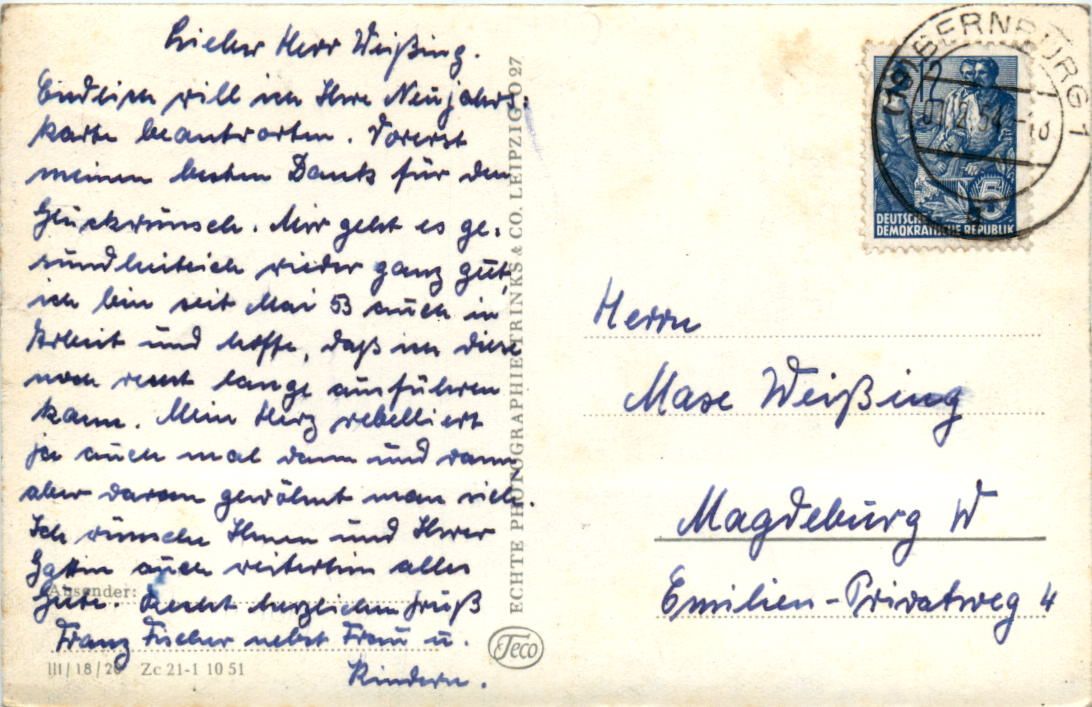 Lieber Herr Weißing.
Endlich will ich Ihre Neujahrs-
karte beantworten. Vorerst
meinen besten Dank für den
Glückwunsch. Mir geht es ge-
sundheitlich wieder ganz gut,
ich bin seit Mai 53 auch in
Arbeit und hoffe, daß ich diese
noch recht lange ausführen
kann. Mein Herz rebelliert
ja auch mal dann und wann
aber daran gewöhnt man sich.
Ich wünsche Ihnen und Ihrer
Gattin auch weiterhin alles
Gute. Recht herzlichen Gruß
Franz Fischer nebst Frau u.
Kindern.
Absender:
III/18/20 Zc 21-1 10 51
ECHTE PHOTOGRAPHIE TRINKS & CO. LEIPZIG O 27
Teco
BERNBURG 1
DEUTSCHE
DEMOKRATISCHE REPUBLIK
5
Herrn
Maxe Weißing
Magdeburg W
Emilien-Privatweg 4